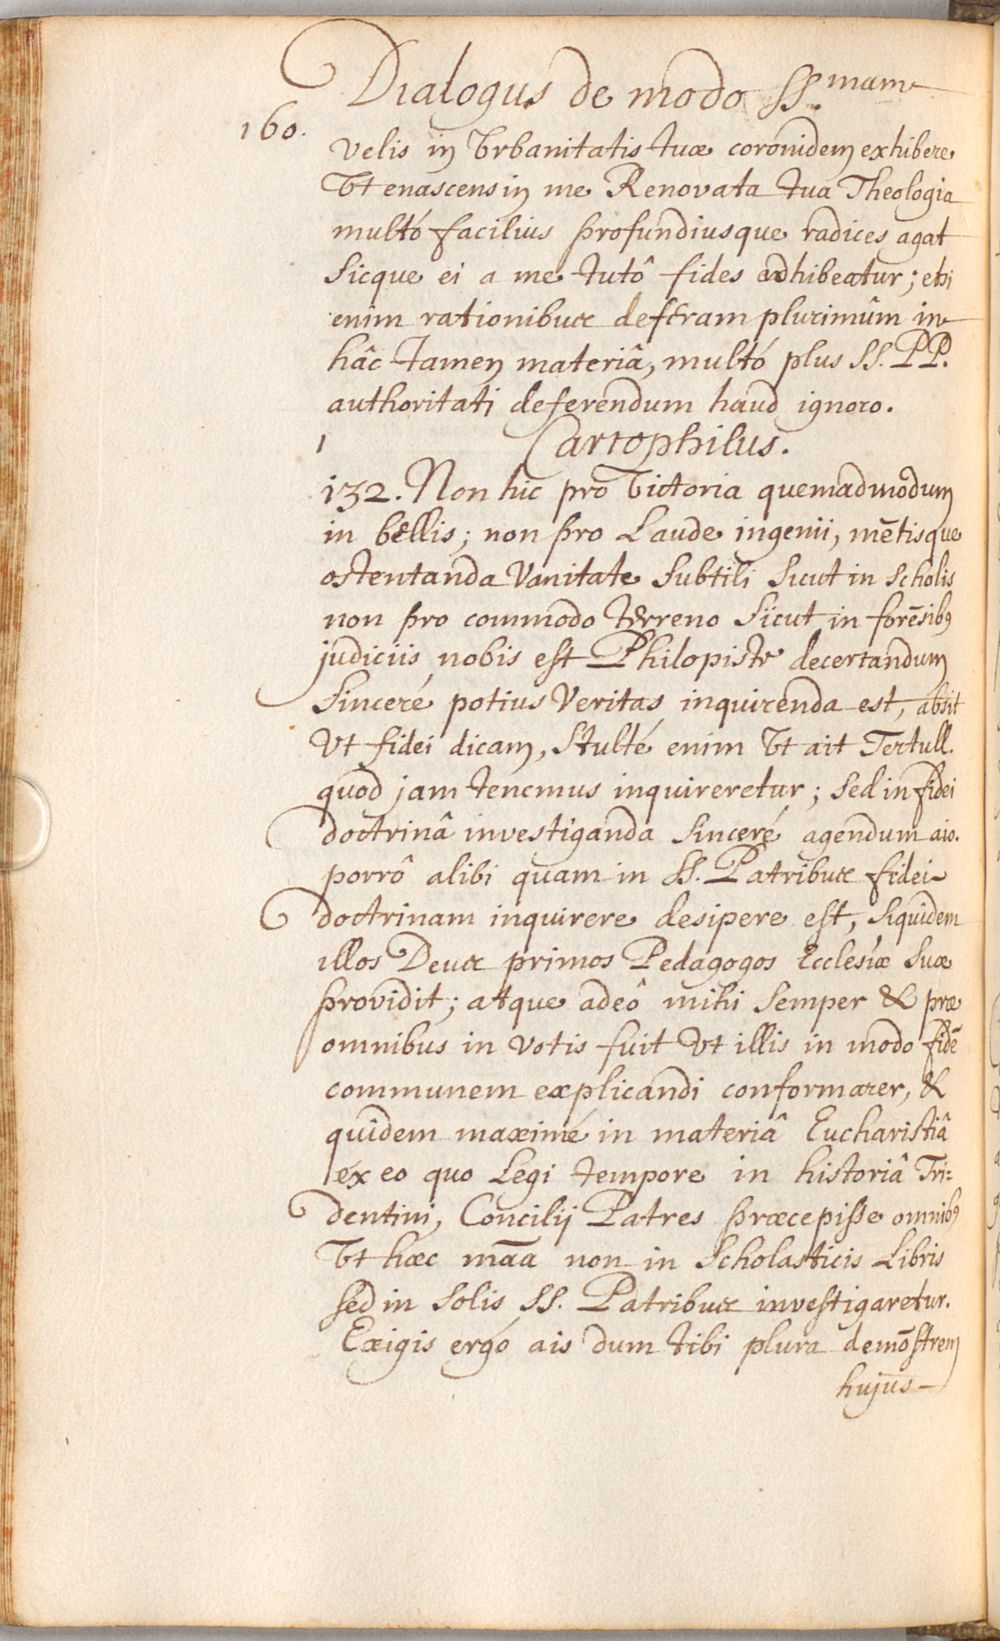 Dialogus de modo SS.mam
160.
velis in Vrbanitatis tuæ coronidem exhibere
Vt enascens in me Renovata tua Theologia
multó facilius profundiusque radices agat
Sicque ei a me tutô fides adhibeatur; etsi
enim rationibus desfram plurimûm in
hâc tamen materiâ, multó plus SS. PP.
authoritati deferendum haud ignoro.
Cartophilus.
132. Non hic pro Victoria quemadmodum
in bellis; non pro Laude ingenii, mētisque
ostentanda Vanitate Subtili Sicut in Scholis
non pro commodo terreno Sicut in forēsibꝰ
judiciis nobis est Philopiste decertandum
Sinceré potius Veritas inquirenda est, absit
Vt fidei dicam, Stulté enim Vt ait Tertull.
quod jam tenemus inquireretur; Sed in fidei
doctrinâ investiganda Sinceré agendum aio.
porrô alibi quam in SS. Patribus fidei
doctrinam inquirere desipere est, Siquidem
illos Deus primos Pedagogos Ecclesiæ Suæ
providit; atque adeô mihi Semper & præ
omnibus in votis fuit Vt illis in modo fidē
communem explicandi conformarer, &
quidem maximé in materiâ Eucharistiâ
ex eo quo Legi tempore in historiâ Tri=
dentini, Concilij Patres præcepisse omnibꝰ
Vt hæc māa non in Scholasticis Libris
sed in Solis SS. Patribus investigaretur.
Exigis ergó ais dum tibi plura demōstrem
hujus